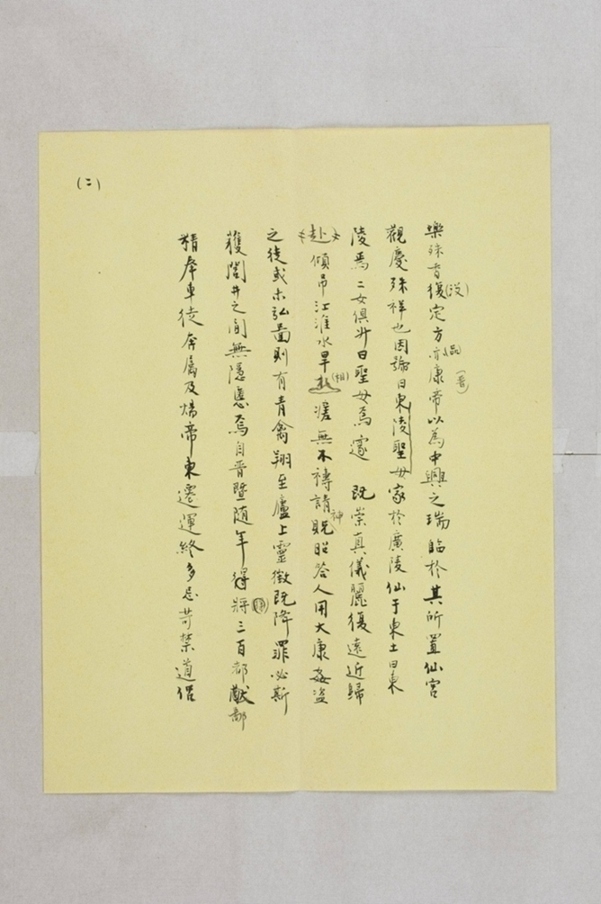 (二)
樂殊香復(没)定方亦康帝以為中興之瑞臨於其所置仙宮
觀慶殊祥也因論曰東陵聖母家於廣陵仙于東土曰東
陵焉二女俱升曰聖母焉邃 既崇真儀麗復遠近歸
赴傾吊江淮水旱(相)瘥無不禱請神貺昭答人用大康姦盜
之徒或未弘啚則有青禽翔至廬上靈徵既降罪必斯
獲閭井之間無隱慝焉自晉暨随年得將三百都猷鄙
精奉車徒奔属及煬帝東遷運終多忌苛禁道侣